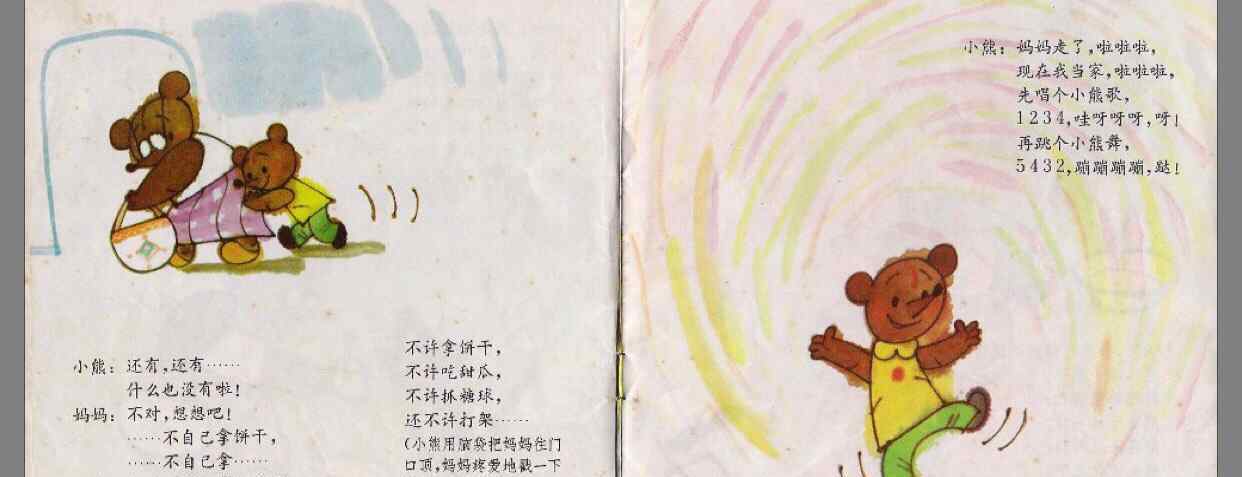 小熊：还有，还有……
什么也没有啦！
妈妈：不对，想想吧！
……不自己拿饼干，
……不自己拿……
不许拿饼干，
不许吃甜瓜，
不许抓糖球，
还不许打架……
（小熊用脑袋把妈妈往门
口顶，妈妈疼爱地戳一下
小熊：妈妈走了，啦啦啦，
现在我当家，啦啦啦，
先唱个小熊歌，
1234，哇呀呀呀，呀！
再跳个小熊舞，
5432，蹦蹦蹦蹦，跶！